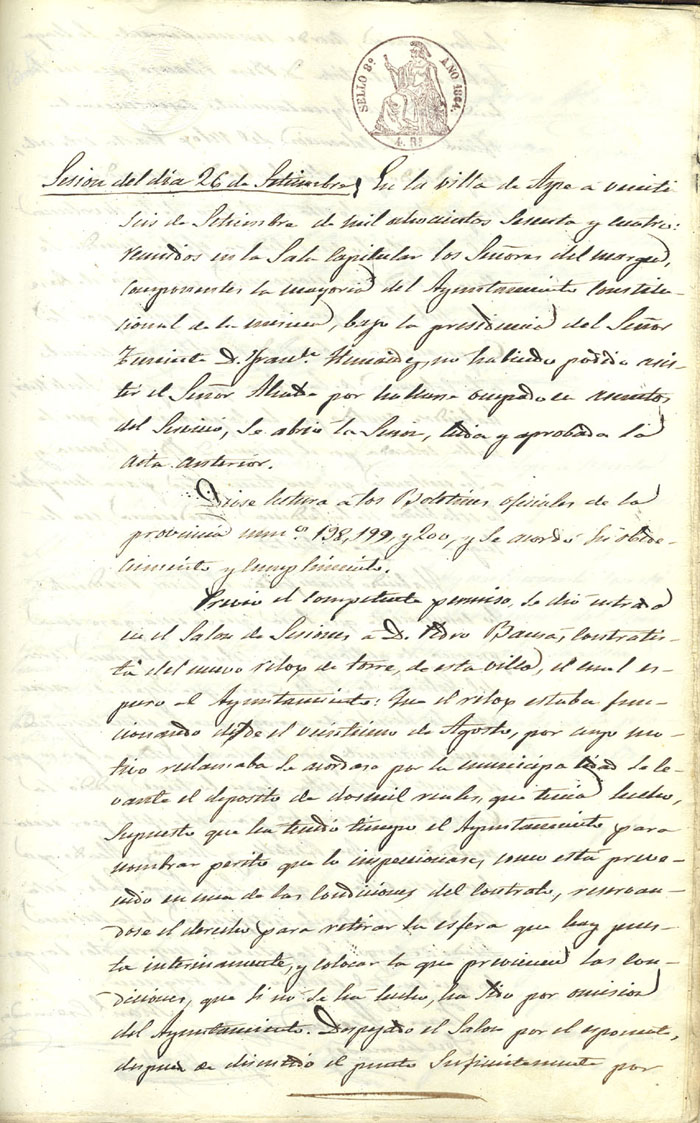 SELLO 8º AÑO 1864.
4. Rs
Sesion del dia 26 de Setiembre, En la villa de Aspe a veinti
seis de Setiembre de mil ochocientos sesenta y cuatro:
reunidos en la Sala Capitular los Señores del margen,
componentes la mayoria del Ayuntamiento Constitu-
cional de la misma, bajo la presidencia del Señor
Teniente D. Franco. no habiendo podido asis-
tir el Señor Alcalde por hallarse ocupado en asuntos
del Servicio, se abrió la Sesion, leida y aprobada la
acta anterior.
Diose lectura a los Boletines oficiales de la
provincia numos 198, 199, y 200, y se acordó su obede-
cimiento y cumplimiento.
Previo el competente permiso, se dió entrada
en el Salon de Sesiones a D. Pedro contratis-
ta del nuevo relox de torre, de esta villa, el cual es-
puso al Ayuntamiento: Que el relox estaba fun-
cionando desde el de Agosto, por cuyo mo-
tivo reclamaba se acordase por la municipalidad se le-
vante el deposito de dos mil reales, que tenia hecho,
supuesto que ha tenido tiempo el Ayuntamiento para
nombrar perito que lo inspeccionase, como está preve-
nido en una de las condiciones del contrato, reservan-
dose el derecho para retirar la esfera que hay pues-
ta interinamente, y colocar la que previenen las con-
diciones, que si no se ha hecho, ha sido por omision
del Ayuntamiento. Despejado el Salon por el esponente,
despues de discutido el punto suficientemente por